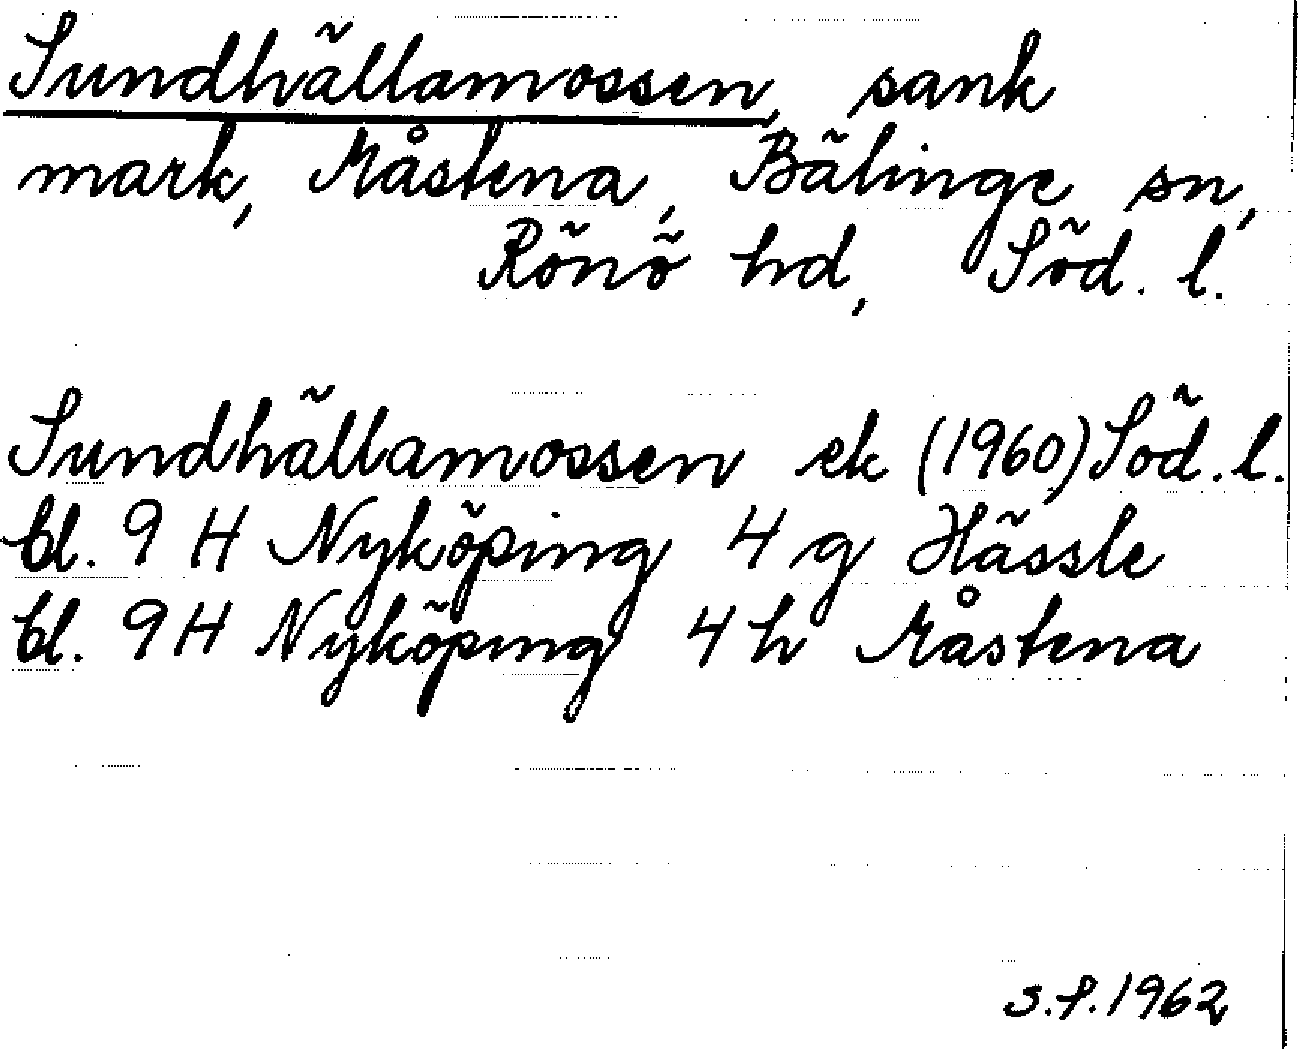 Sundhällamossen, sank
mark, Måstena, Bälinge sn,
Rönö hd, Söd. l.
Sundhällamossen ek (1960) Söd. l.
bl. 9 H Nyköping 4 g Hässle
bl. 9 H Nyköping 4 h Måstena
S.P. 1962